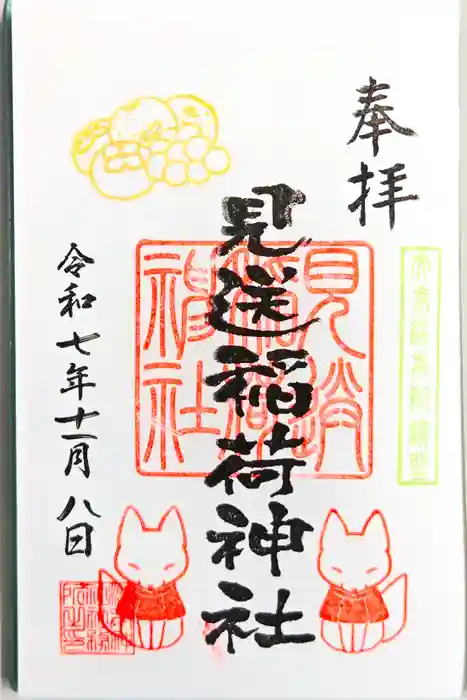 奉拝
見送稲荷神社
見送
稲荷
神社
令和七年十一月八日